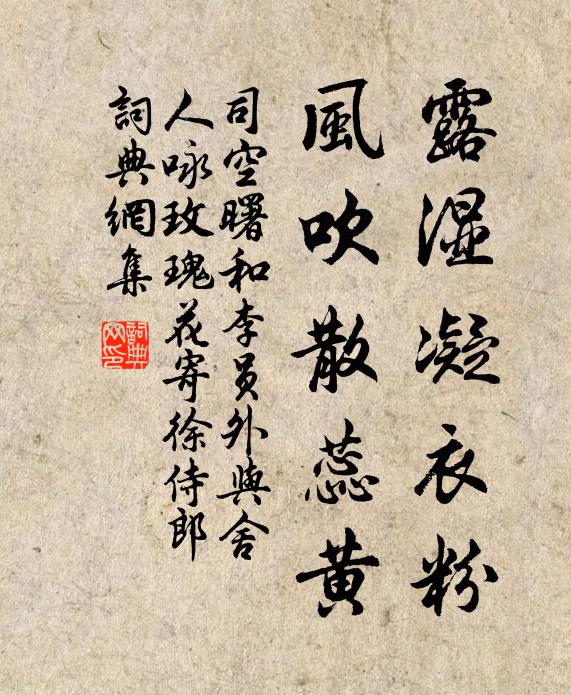 露湿凝衣粉
風吹散蕊黄
司空曙和李員外與舍
人咏玫瑰花寄徐侍郎
詞典網集
詞典
网印